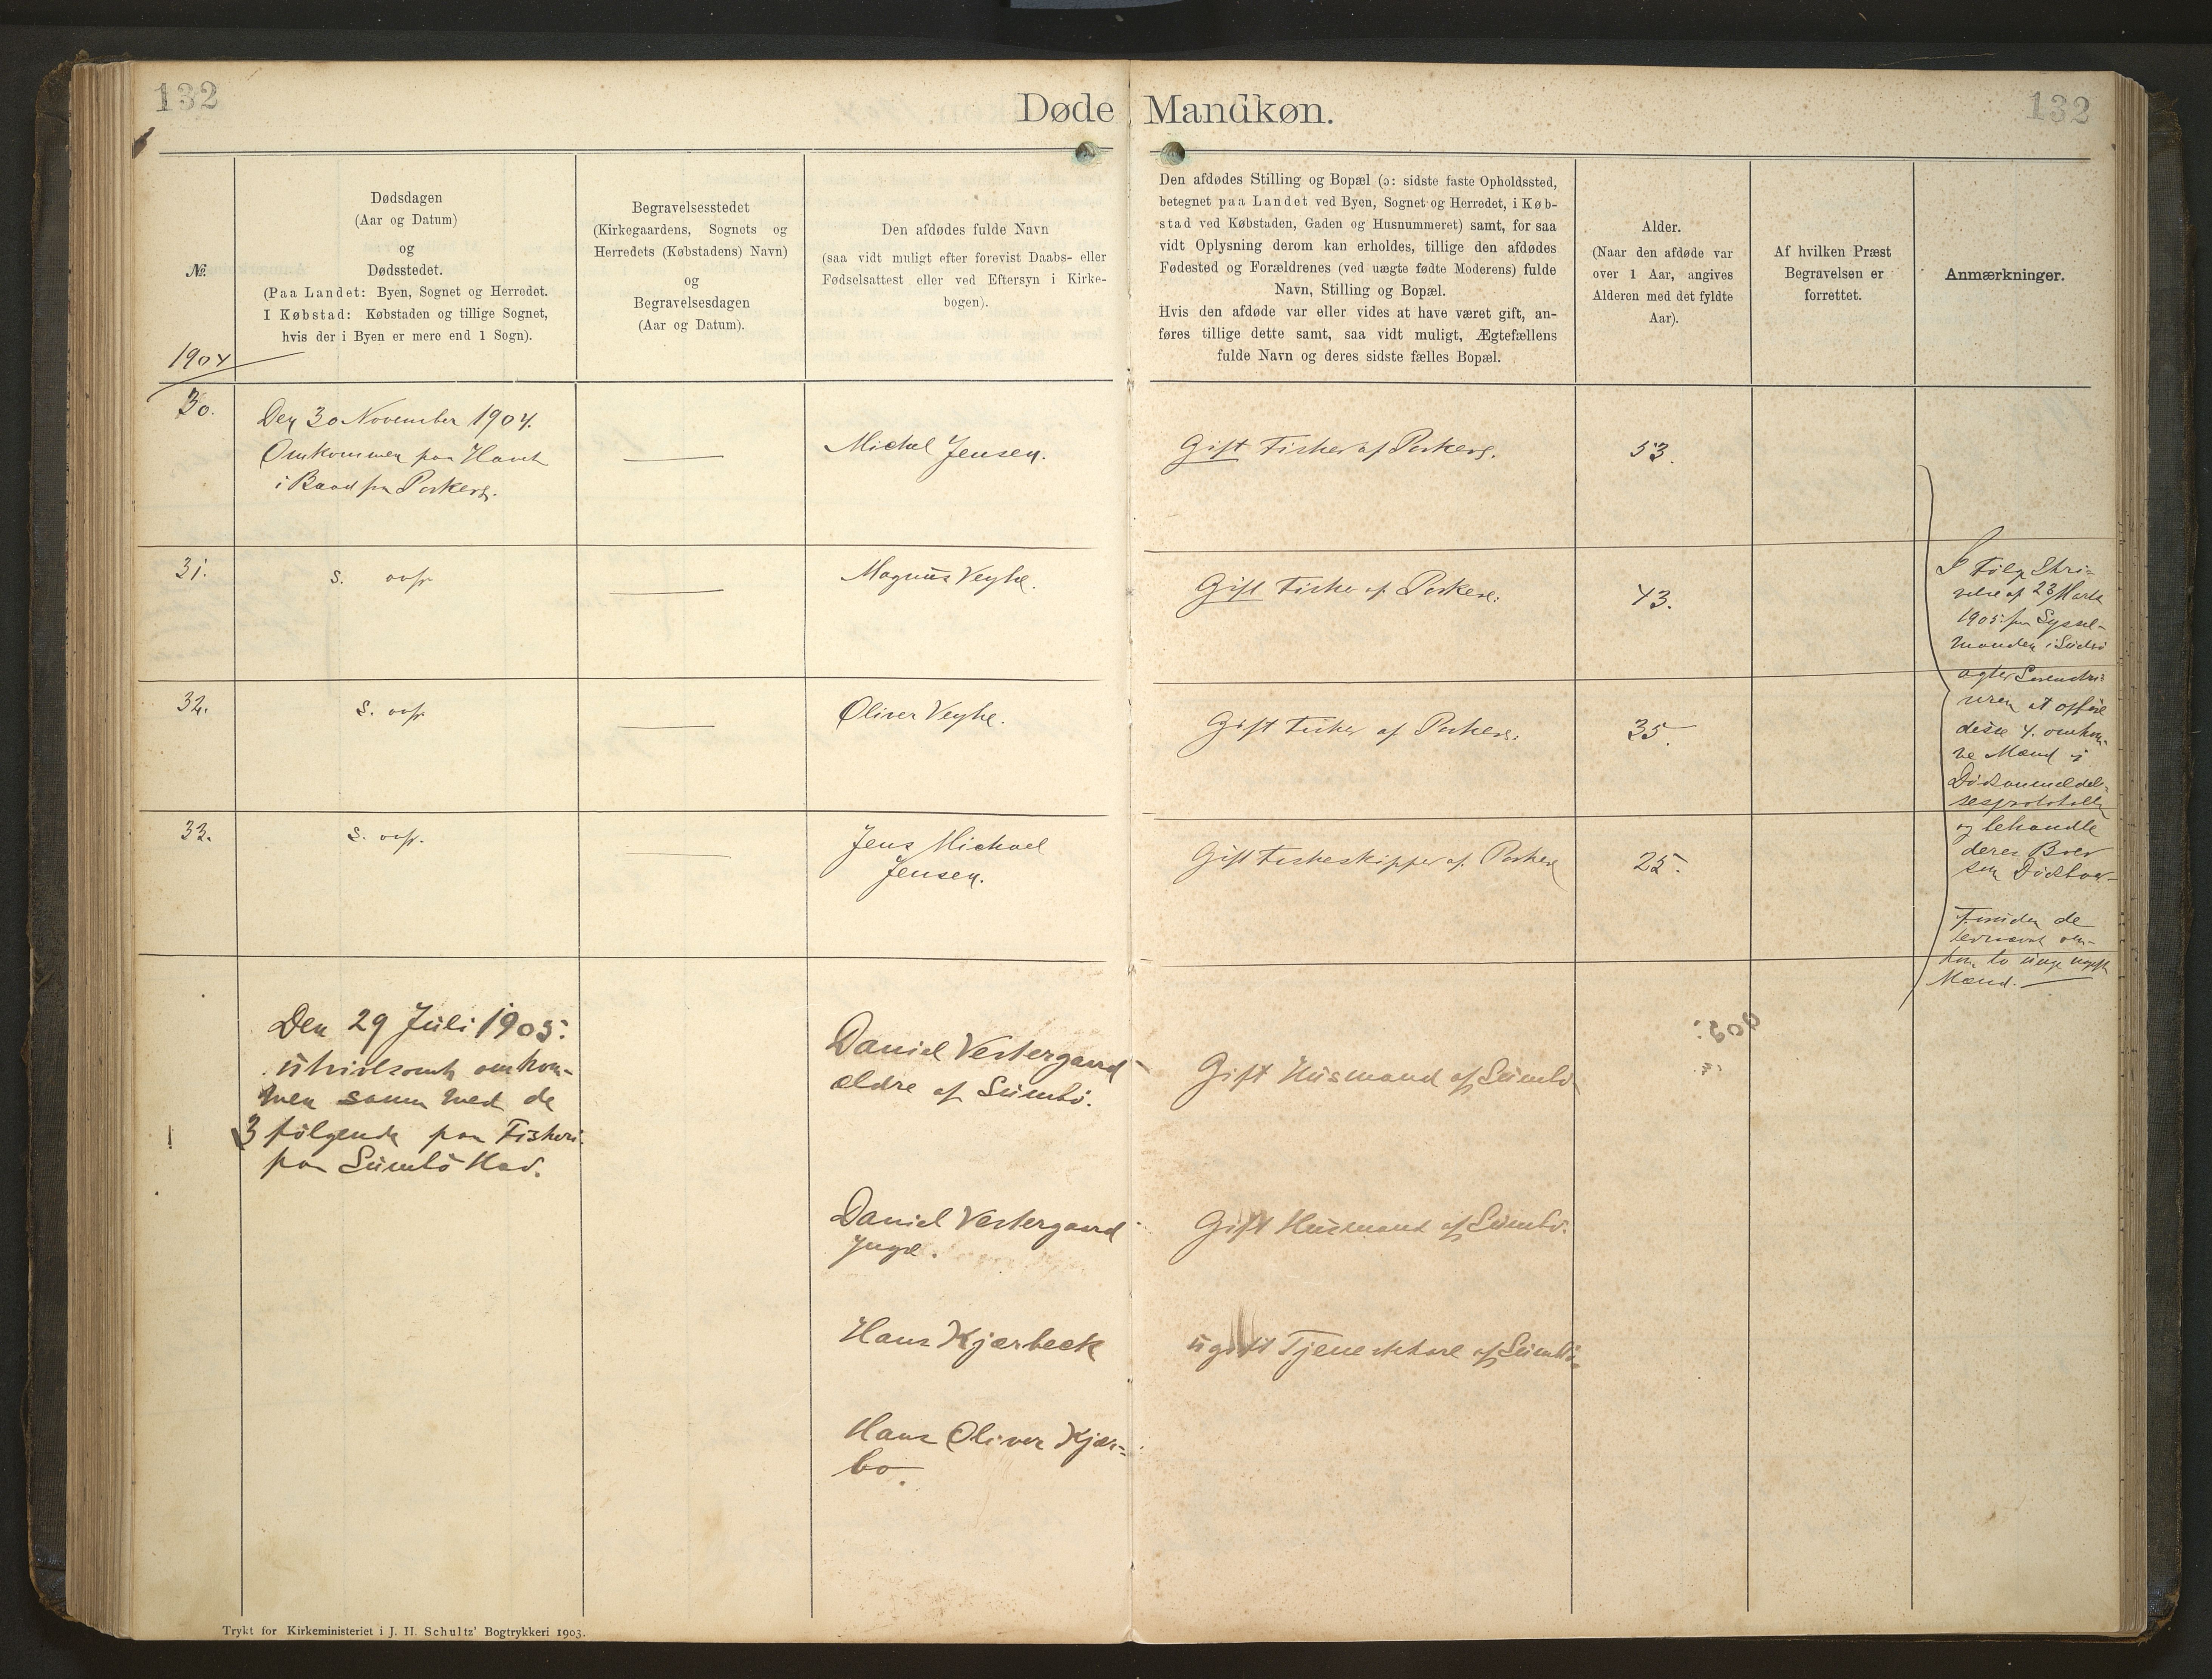 132
Døde Mandkøn.
132
№
Dødsdagen
(Aar og Datum)
og
Dødsstedet.
(Paa Landet: Byen, Sognet og Herredet.
I Købstad: Købstaden og tillige Sognet,
hvis der i Byen er mere end 1 Sogn).
Begravelsesstedet
(Kirkegaardens, Sognets og
Herredets (Købstadens) Navn)
og
Begravelsesdagen
(Aar og Datum).
Den afdødes fulde Navn
(saa vidt muligt efter forevist Daabs- eller
Fødselsattest eller ved Eftersyn i Kirke-
bogen).
Den afdødes Stilling og Bopæl (ɔ: sidste faste Opholdssted,
betegnet paa Landet ved Byen, Sognet og Herredet, i Køb-
stad ved Købstaden, Gaden og Husnummeret) samt, for saa
vidt Oplysning derom kan erholdes, tillige den afdødes
Fødested og Forældrenes (ved uægte fødte Moderens) fulde
Navn, Stilling og Bopæl.
Hvis den afdøde var eller vides at have været gift, an-
føres tillige dette samt, saa vidt muligt, Ægtefællens
fulde Navn og deres sidste fælles Bopæl.
Alder.
(Naar den afdøde var
over 1 Aar, angives
Alderen med det fyldte
Aar).
Af hvilken Præst
Begravelsen er
forrettet.
Anmærkninger.
1904
30.
Den 30 November 1904.
Omkommen paa Havet
i Baad fra Porkere.
Michal Jensen.
Gift Fisker af Porkere.
53.
31.
s. ovfr.
Magnus Veyhe.
Gift Fisker af Porkere.
43.
32.
s. ovfr.
Oliver Veyhe.
Gift Fisker af Porkere.
35.
33.
s. ovfr.
Jens Michael
Jensen.
Gift Fiskeskipper af Porkere
25.
I Følge Skri-
velse af 23 Marts
1905 fra Syssel-
manden i Suderø
agter Sorenskri-
veren at opføre
disse 4 omkom-
ne Mænd i
Dødsanmeldel-
sesprotokollen
og behandle
deres Boer
som Dødsboer
Foruden de
to unge ugifte
Mænd.
Den 29 Juli 1905.
utvivlsomt omkom-
men samm med de
3 følgende paa Fiskeri
paa Sumbø Hav.
Daniel Vestergaard
ældre af Sumbø.
Gift Husmand af Sumbø
Daniel Vestergaard
yngre.
Gift Husmand af Sumbø.
Hans Kjærbeck
ugift Tjenestekarl af Sumbø
Hans Oliver Kjær-
bo.
Trykt for Kirkeministeriet i J. H. Schultz' Bogtrykkeri 1903.